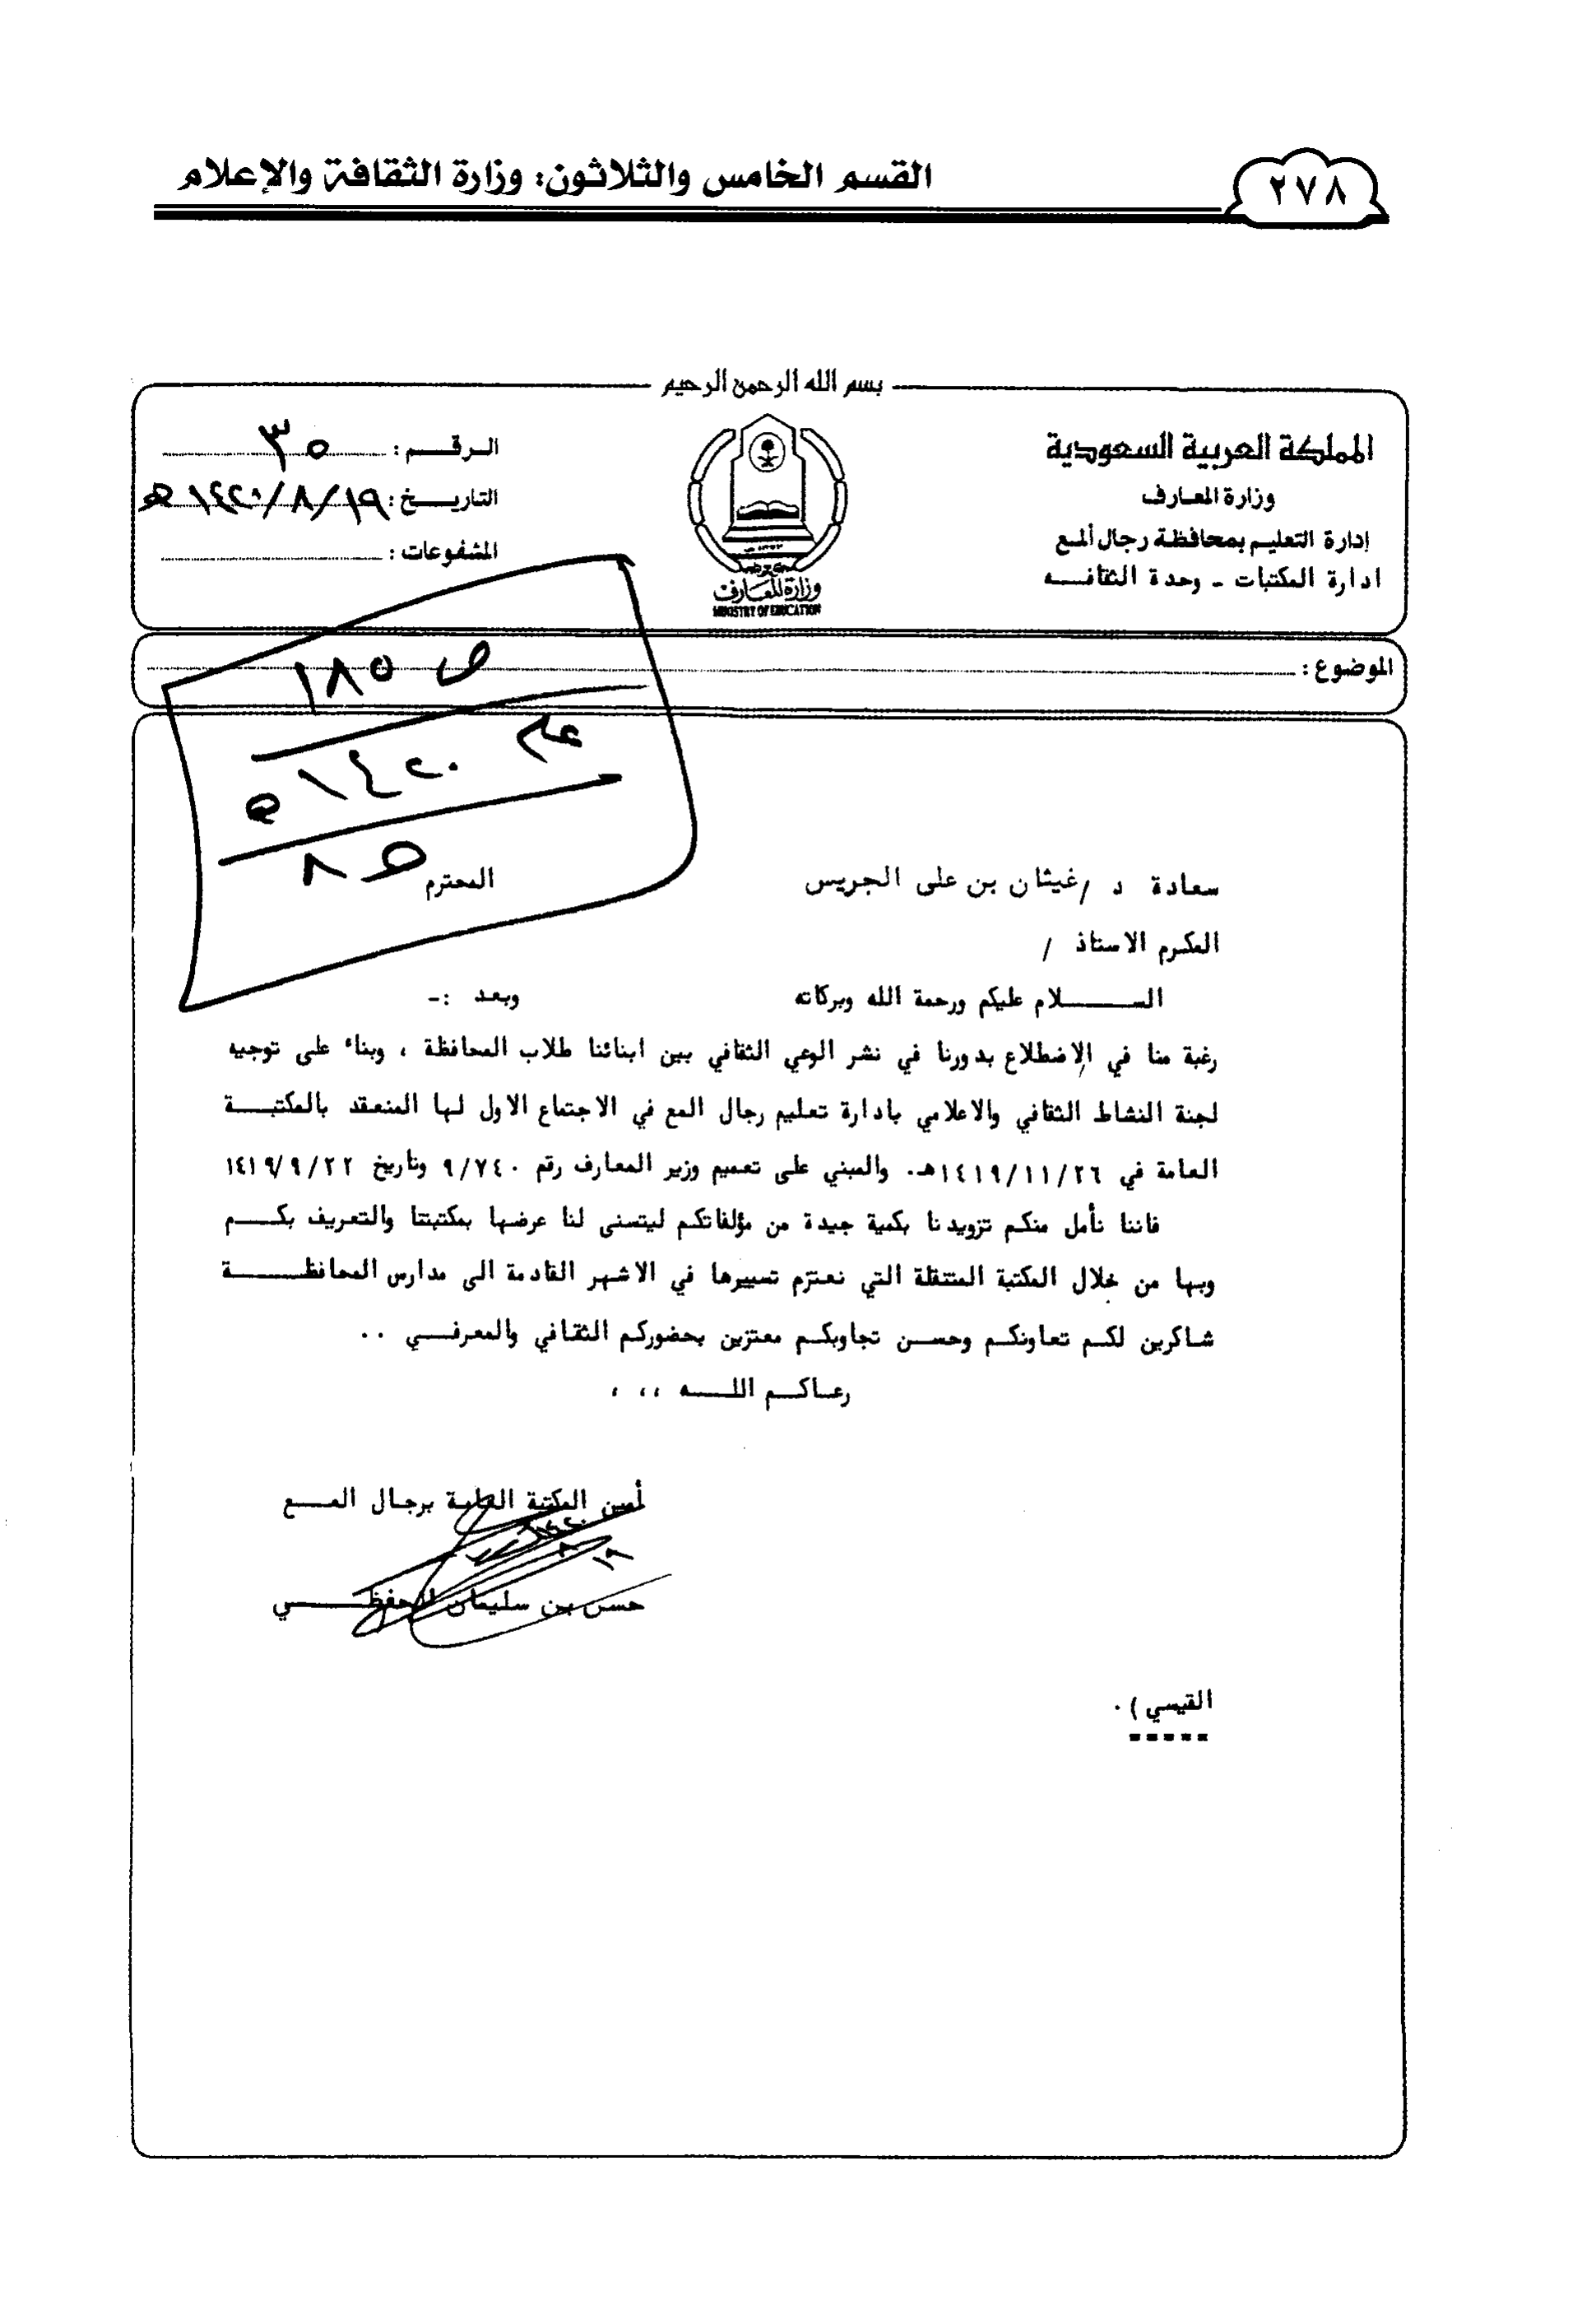 ٢٧٨
القسم الخامس والثلاثون: وزارة الثقافة والإعلام
بسم الله الرحمن الرحيم
المملكة العربية السعودية
وزارة المعارف
إدارة التعليم بمحافظة رجال ألمع
ادارة المكتبات - وحدة الثقافـه
وزارة المعارف
MINISTRY OF EDUCATION
الـرقــــم : ٣٥
التاريــــخ : ١٤٢٠/٨/١٩هـ
المشفوعات :
الموضوع :
ص ١٨٥
عام ١٤٢٠هـ
ص ٨
سعادة د / غيثان بن على الجريس المحترم
المكرم الاستاذ /
الســـــــلام عليكم ورحمة الله وبركاته وبعد :-
رغبة منا في الاضطلاع بدورنا في نشر الوعي الثقافي بين ابنائنا طلاب المحافظة ، وبناء على توجيه
لجنة النشاط الثقافي والاعلامي بادارة تعليم رجال المع في الاجتماع الاول لـها المنعقد بالمكتبــــة
العامة في ١٤١٩/١١/٢٦هـ. والمبني على تعميم وزير المعارف رقم ٩/٧٤٠ وتاريخ ١٤١٩/٩/٢٢
فاننا نأمل منكم تزويدنا بكمية جيدة من مؤلفاتكم ليتسنى لنا عرضها بمكتبتنا والتعريف بكــــم
وبـها من خلال المكتبة المتنقلة التي نعتزم تسييرها في الاشهر القادمة الى مدارس المحافظـــــــة
شـاكرين لكـم تعاونكـم وحسـن تجاوبكـم معتزين بحضوركم الثقـافي والمعرفـــي ..
رعـاكــم اللـــه ،، ،
أمين المكتبة العامة برجـال المـــع
١٤٢٠
٨
١٩
حسن بـن سليمان الحفظـــــــي
القيسي ) .